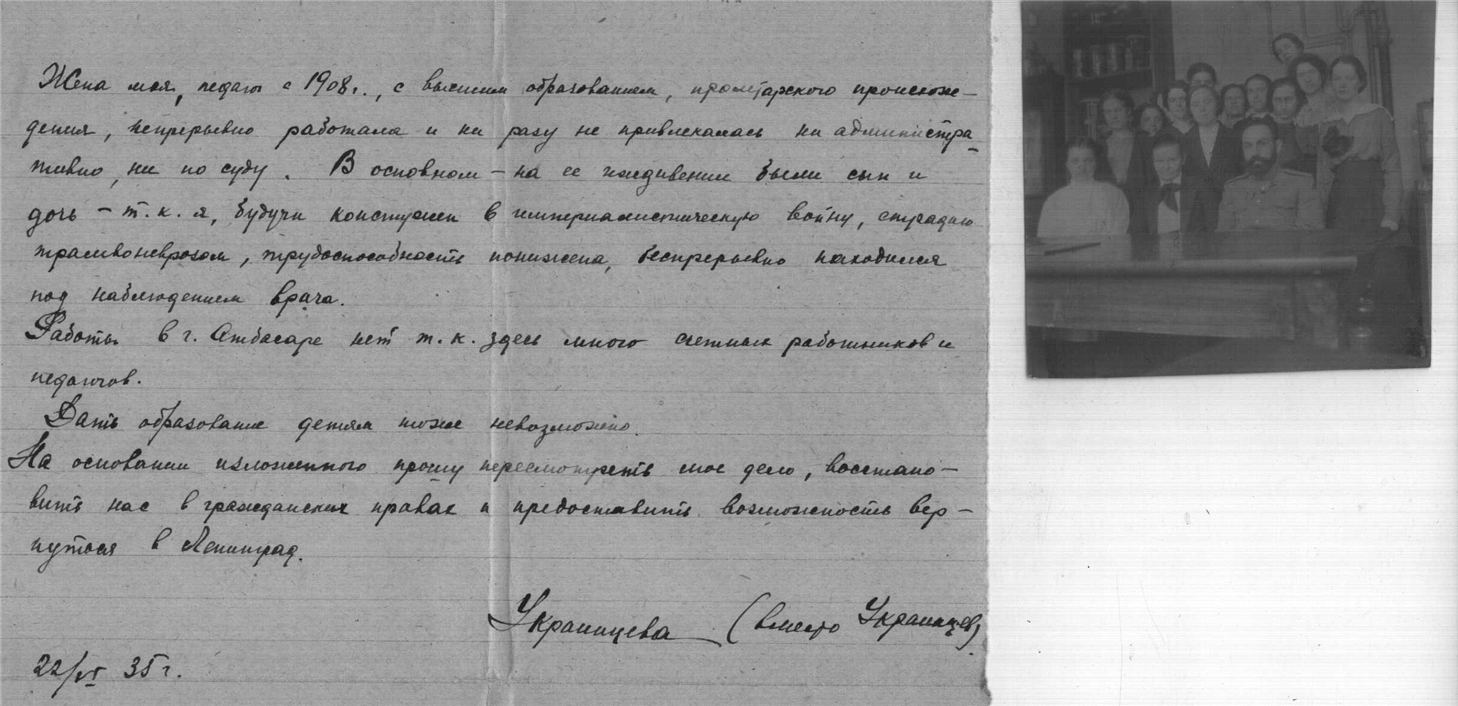 Жена моя, педагог с 1908 г., с высшим образованием, пролетарского происхож-
дения, непрерывно работала и ни разу не привлекалась ни администра-
тивно, ни по суду. В основном – на ее иждивении были сын и
дочь – т. к. я, будучи контужен в империалистическую войну, страдаю
травмоневрозом, трудоспособность понижена, беспрерывно находился
под наблюдением врача.
Работы в г. Атбасаре нет т. к. здесь много счетных работников и
педагогов.
Дать образование детям тоже невозможно.
На основании изложенного прошу пересмотреть мое дело, восстано-
вить нас в гражданских правах и предоставить возможность вер-
нуться в Ленинград.
Украинцева (вместо Украинцев)
22/VI 35 г.